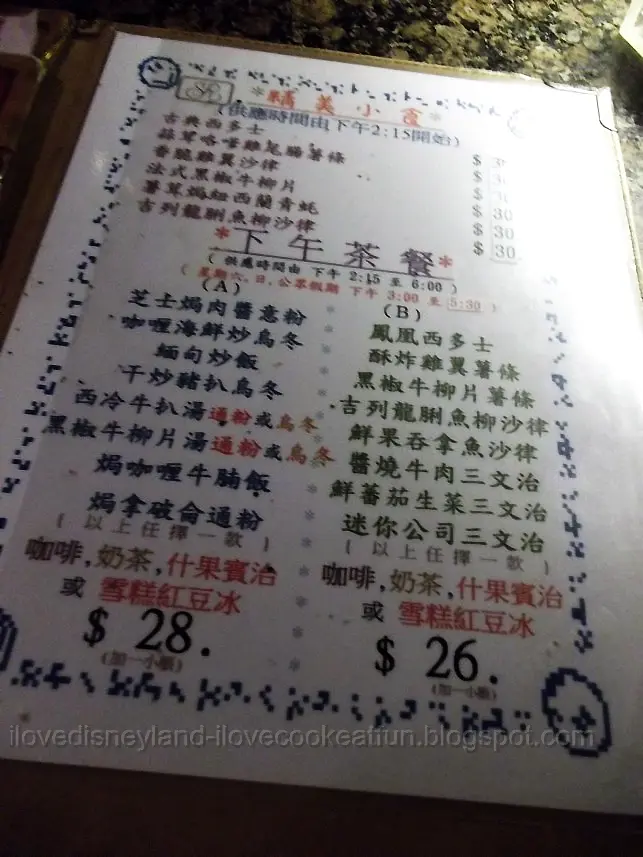 *精美小食*
(供應時間由下午2:15開始)
古典西多士 $
蒜茸咯嗲雞尾腸薯條 $
香脆雞翼沙律 $
法式黑椒牛柳片 $ 30
薯茸焗紐西蘭青蚝 $ 30
吉列龍脷魚柳沙律 $ 30.
*下午茶餐*
( 供應時間由 下午 2:15 至 6:00 )
( 星期六,日,公眾假期 下午 3:00 至 5:30 )
(A)
芝士焗肉醬意粉
咖喱海鮮炒烏冬
緬甸炒飯
干炒豬扒烏冬
西冷牛扒湯通粉或烏冬
黑椒牛柳片湯通粉或烏冬
焗咖喱牛腩飯
焗拿破侖通粉
( 以上任擇一款 )
咖啡,奶茶,什果賓治
或 雪糕紅豆冰
$ 28.
(加一小賬)
(B)
鳳凰西多士
酥炸雞翼薯條
黑椒牛柳片薯條
吉列龍脷魚柳沙律
鮮果吞拿魚沙律
醬燒牛肉三文治
鮮蕃茄生菜三文治
迷你公司三文治
( 以上任擇一款 )
咖啡,奶茶,什果賓治
或 雪糕紅豆冰
$ 26.
(加一小賬)
ilovedisneyland-ilovecookeatfun.blogspot.com